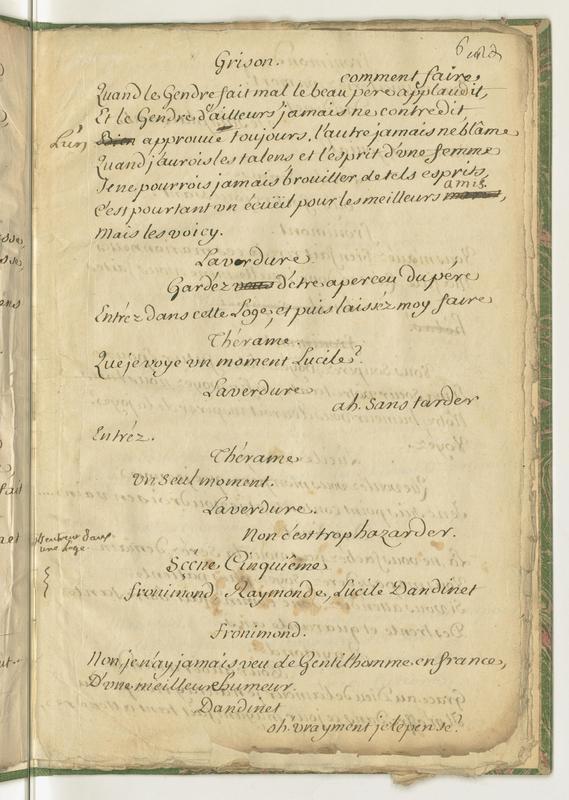 Grison.
comment faire,
Quand le Gendre fait mal le beau pere applaudit,
Et le Gendre d'ailleurs jamais ne contredit
L'un approuve toujours, l'autre jamais ne blâme
Quand j'aurois les talens et l'esprit d'vne femme
Je ne pourrois jamais brouiller de tels esprits,
C'est pourtant vn écüëil pour les meilleurs amis,
Mais les voicy.
Laverdure
Gardéz d'étre aperceu du pére
Entréz dans cette Loge, et puis laisséz moy faire
Thérame.
Que je voye vn moment Lucile?
Laverdure
ah. sans tarder
Entréz.
Thérame
vn seul moment.
Laverdure.
Non c'est trop hazarder.
dans
une loge
Sçene Cinquiême
fronimond Raymonde, Lucile Dandinet
fronimond.
Non, je n'ay jamais veu de Gentilhomme en france,
D'vne meilleure humeur
Dandinet
oh. vrayment je le pense?